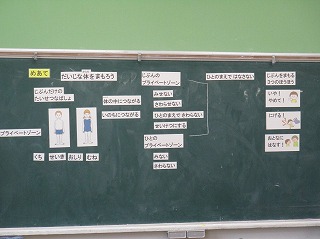 めあて
だいじな体をまもろう
じぶんだけの
たいせつなばしょ
プライベートゾーン
くち
せいき
おしり
むね
体の中につながる
いのちにつながる
じぶんの
プライベートゾーン
みせない
さわらせない
せいけつにする
ひとの
プライベートゾーン
みない
さわらない
ひとのまえで はなさない
ひとのまえで さわらない
じぶんをまもる
3つのほうほう
いや!
やめて!
にげる!
おとなに
はなす!